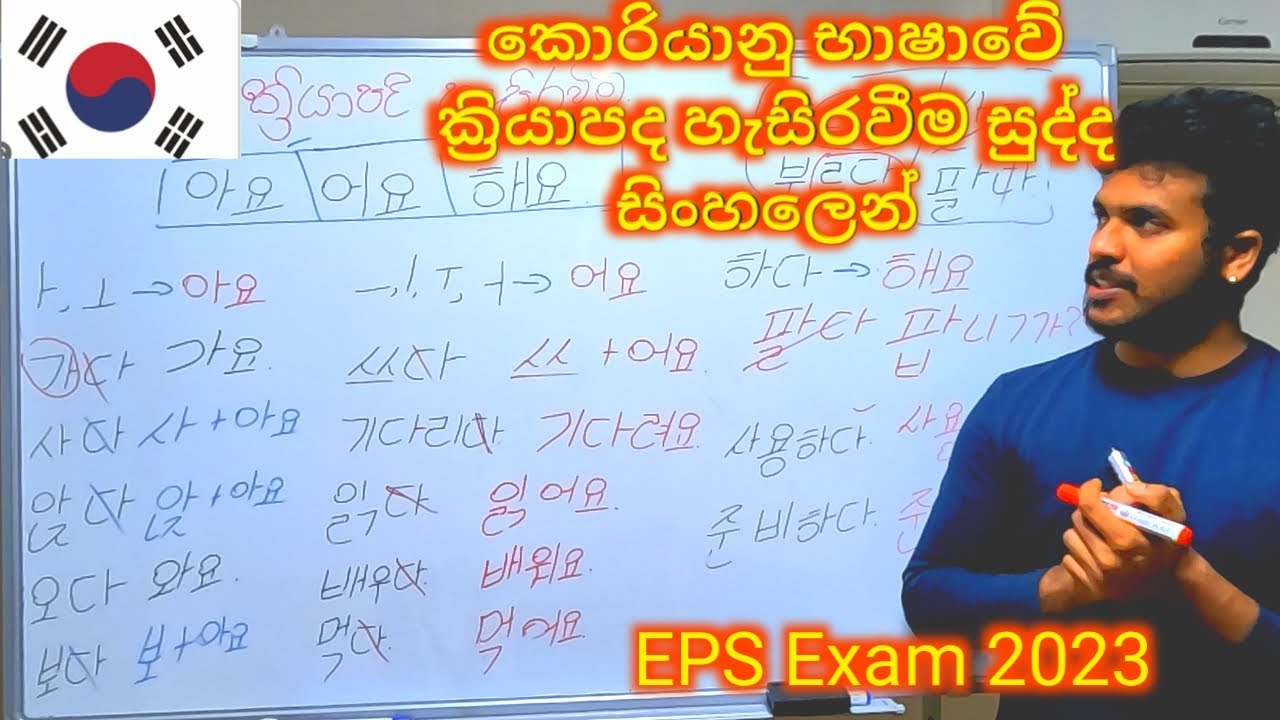 කොරියානු භාෂාවේ
ක්‍රියාපද හැසිරවීම සුද්ද
සිංහලෙන්
ක්‍රියාපද හැසිරවීම
아요 어요 해요
ㅏ, ㅗ → 아요 ㅡ, ㅣ, ㅜ, ㅓ → 어요 하다 → 해요
가다 가요 쓰다 쓰 + 어요 팔다 팝니까?
사다 사 + 아요 기다리다 기다려요 사용하다 사용
앉다 앉 + 아요 읽다 읽어요 준비하다 준
오다 와요 배우다 배워요
보다 보 + 아요 먹다 먹어요
EPS Exam 2023